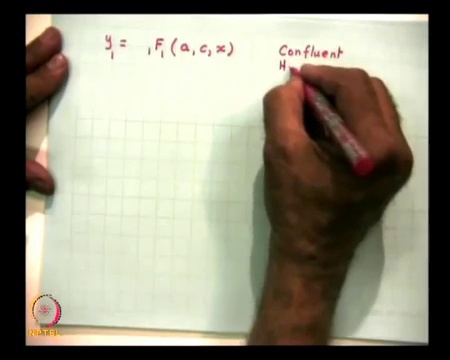 y₁ = ₁F₁ (a, c, x)
Confluent
H
NPTEL